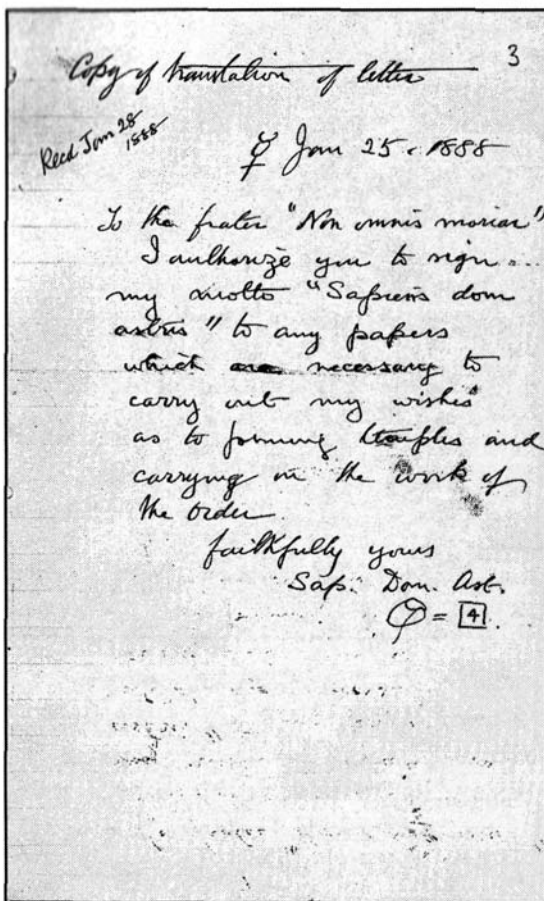 3
Copy of translation of letter
Recd Jan 28
1888
☿ Jan 25. 1888
To the frater "Non omnis moriar"
I authorize you to sign
my motto "Sapiens dom
astris" to any papers
which are necessary to
carry out my wishes
as to forming temples and
carrying on the work of
the order
faithfully yours
Sap. Dom. Ast.
⑦ = 4